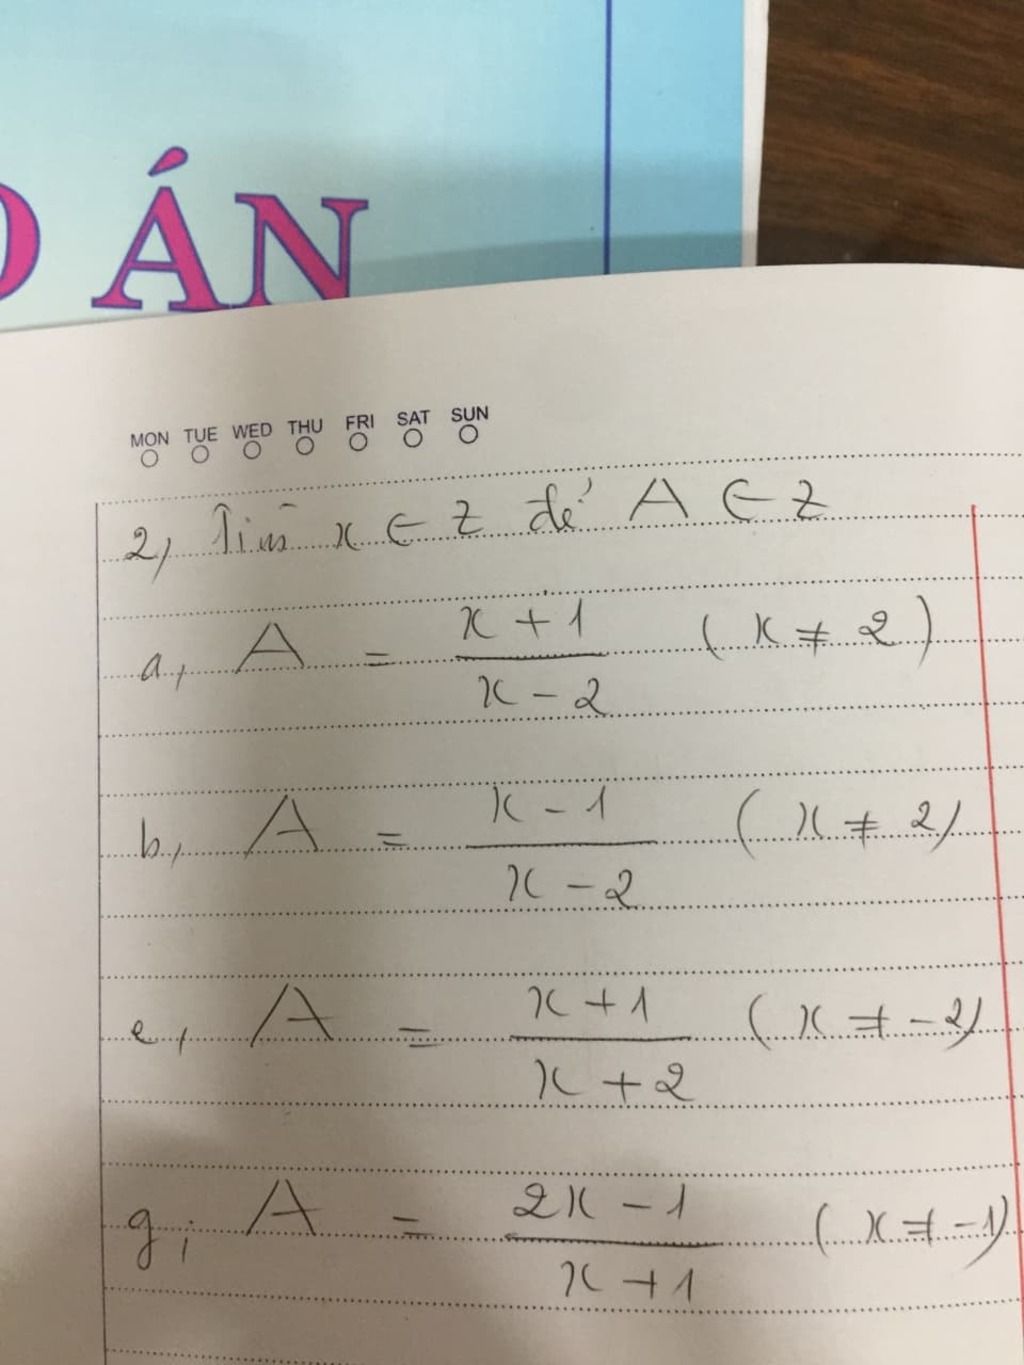 O ÁN
MON TUE WED THU FRI SAT SUN
2, Tìm x ∈ Z để A ∈ Z
a, A = \frac{x + 1}{x - 2} (x ≠ 2)
b, A = \frac{x - 1}{x - 2} (x ≠ 2)
e, A = \frac{x + 1}{x + 2} (x ≠ -2)
g, A = \frac{2x - 1}{x + 1} (x ≠ -1)